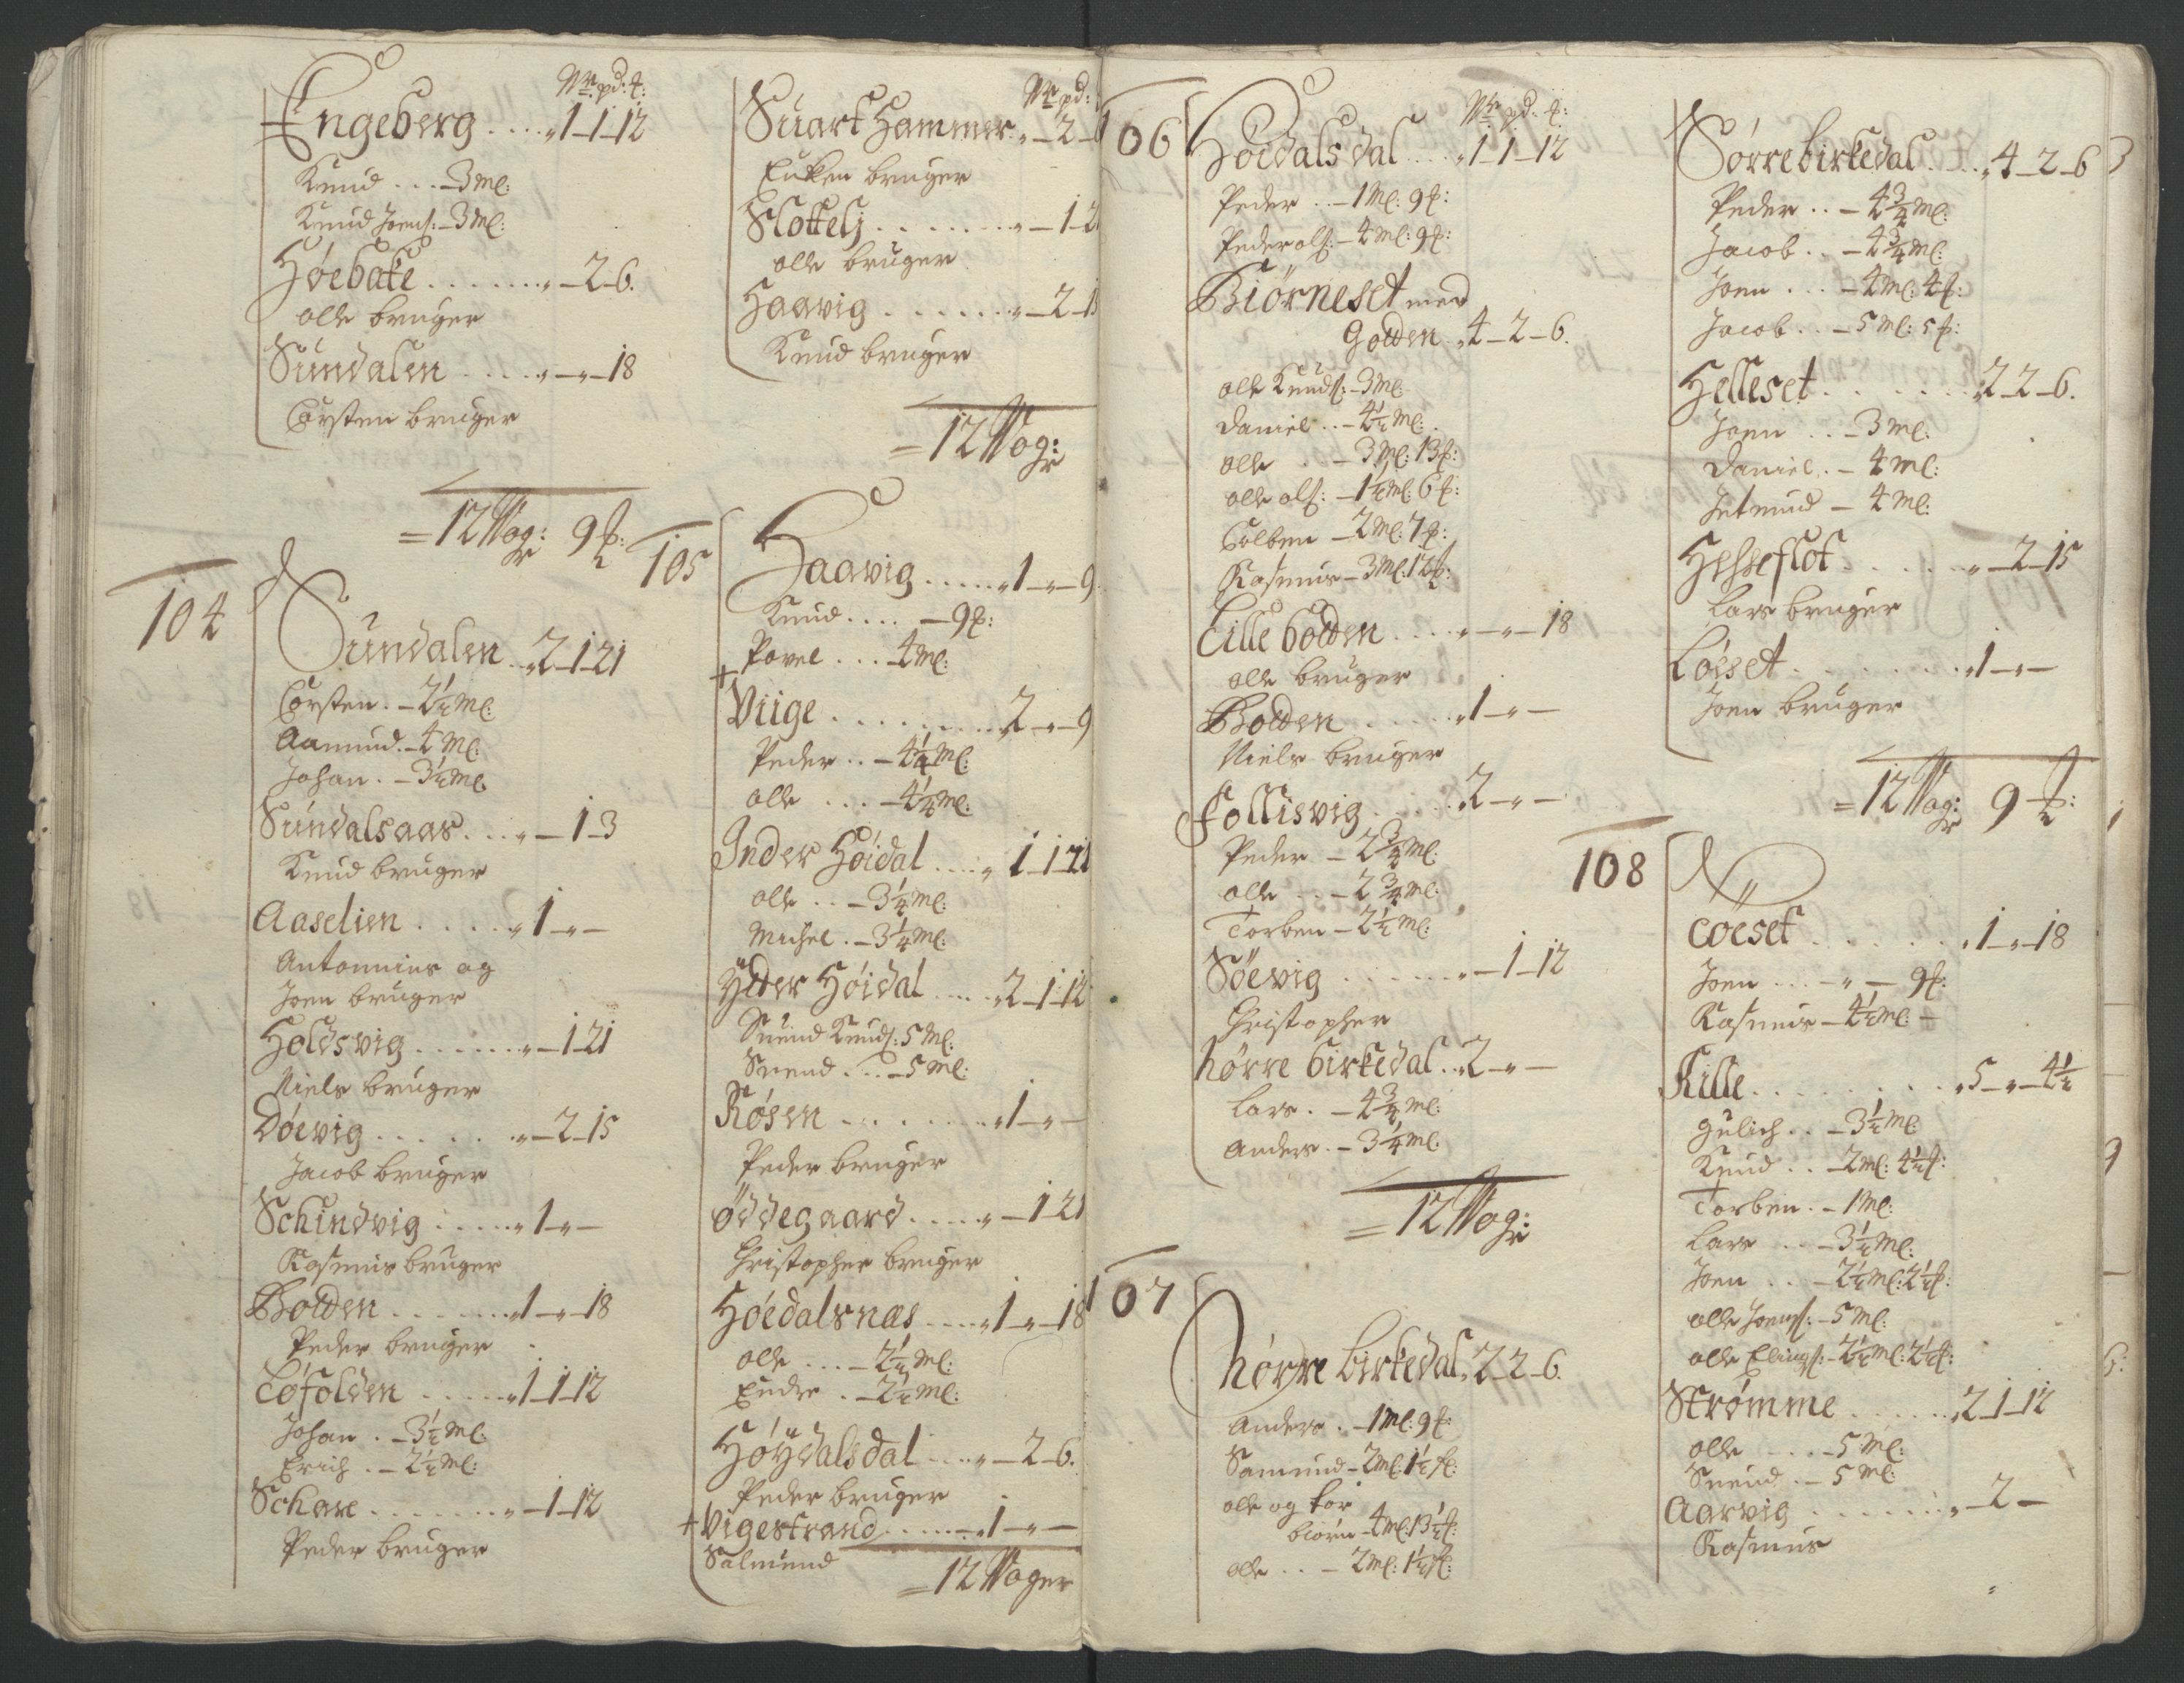 Wr: pd: ℔:
Engeberg .... „1-1-12
Knud ... -3 ml:
Knud Joens: -3 ml:
Höebakke ....... „-2-6.
olle bruger
Sundalen ..... „-„-18
Torsten bruger
= 12 Wog: 9 ℔:
104
Sundalen .. „2-1-21
Torsten . -2½ ml:
Aamund. -4 ml:
Johan . -3½ ml:
Sundalsaas ... „-1-3
Knud bruger
Aaselien ..... „1-„-
Antonnius og
Joen bruger
Holdsvig ...... „-1-21
Niels bruger
Döevig ....... „-2-15
Jacob bruger
Schindvig ..... „1-„-
Rasmus bruger
Botten ....... „1-„-18
Peder bruger
Löfolden ..... „1-1-12
Johan . -3½ ml:
Erich . -2½ ml:
Schare ....... „-1-12
Peder bruger
Wr pd:
Suart Hammer „-2-6
Encken bruger
Slottelj ....... „-1-2
olle bruger
Haavig ....... „-2-15
Knud bruger
= 12 Wog:
105
Haavig ..... „1-„-9
Knud .... -9 ℔:
+ Povel ... 4 ml:
Viige ......... 2-„-9
Peder .. -4¼ ml:
olle ... -4¼ ml:
Inder Höidal .... „1-1-21
olle .. -3¼ ml:
Michel . -3¼ ml:
Ytter Höidal .... „2-1-12
Suend Knuds: 5 ml:
Suend ... -5 ml:
Rösen ......... „1-„-
Peder bruger
Öddegaard ..... „-1-21
Christopher bruger
Höedalsnæs .... „1-„-18
olle ... -2½ ml:
Endre . -2½ ml:
Höydalsdal .... „-2-6.
Peder bruger
+ Vigestrand ...... „1-„-
Salmund
= 12 Wager
106
Wr pd: ℔:
Höidalsdal .... „1-1-12
Peder .. -1 ml: 9 ℔:
Peder ols: -4 ml: 9 ℔:
Biörneset med
Gotten „4-2-6.
olle Knuds: -3 ml:
Daniel .. -4½ ml:
olle . -3 ml: 13 ℔:
olle ols: -1½ ml: 6 ℔:
Tolben -2 ml: 7 ℔:
Rasmus -3 ml: 12 ℔:
Lille botten .... „-„-18
olle bruger
Botten ...... „1-„-
Niels bruger
Follisvig ..... 2-„-
Peder -2¾ ml:
olle ... -2¾ ml:
Torben -2½ ml:
Söevig ...... „-1-12
Christopher
Nörre birkedal .. 2-„-
Lars . -4¾ ml:
Anders . -3¼ ml:
= 12 Wog:
107
Nörre birkedal „2-2-6.
Anders . -1 ml: 9 ℔:
Samund -2 ml: 1½ ℔:
olle og Tor
biörn -4 ml: 13½ ℔:
olle .. -2 ml: 1½ ℔:
Sörre birkedal .... „4-2-6
Peder .. -4¾ ml:
Jacob .. -4¾ ml:
Joen ... -4 ml: 4 ℔:
Jacob .. -5 ml: 5 ℔:
Helleset ...... „2-2-6.
Joen .. -3 ml:
Daniel .. -4 ml:
Jetmund -4 ml:
Hesseflot ...... „-2-15
Lars bruger
Löeset ........ „1-„-
Joen bruger
= 12 Wag: 9 ℔:
108
Löeset ....... „1-„-18
Joen ... -„- 9 ℔:
Rasmus -4½ ml: -
Kille ......... „5-„-4½
Gulich .. -3½ ml:
Knud .. -2 ml: 4½ ℔:
Torben . -1 ml:
Lars .. -3½ ml:
Joen .. -2½ ml: 2½ ℔:
olle Joens: -5 ml:
olle Elings: -2½ ml: 2½ ℔:
Strömme ...... „2-1-12
olle .... -5 ml:
Suend .. -5 ml:
Aarvig ....... „-2-
Rasmus